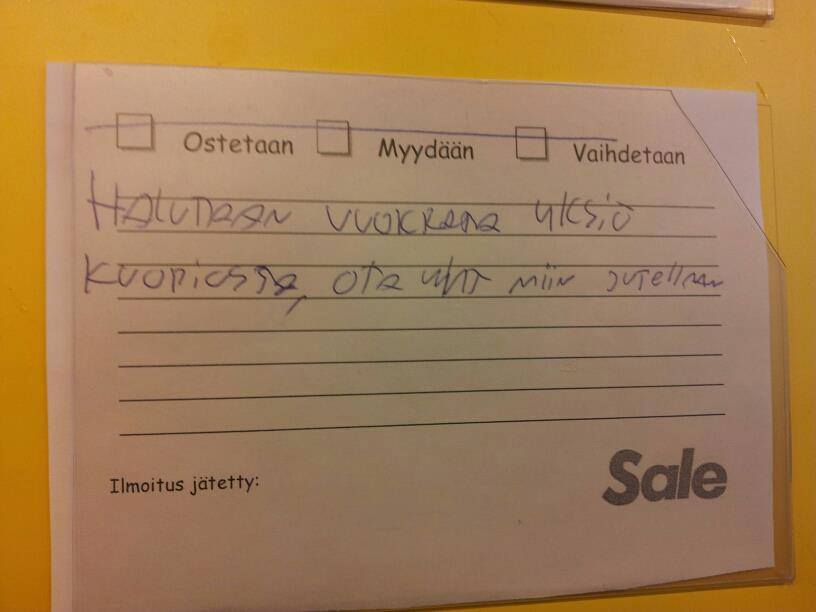 Ostetaan Myydään Vaihdetaan
HALUTAAN VUOKRATA YKSIÖ
KUOPIOSSA, OTA YHT NIIN JUTELLAAN
Ilmoitus jätetty:
Sale